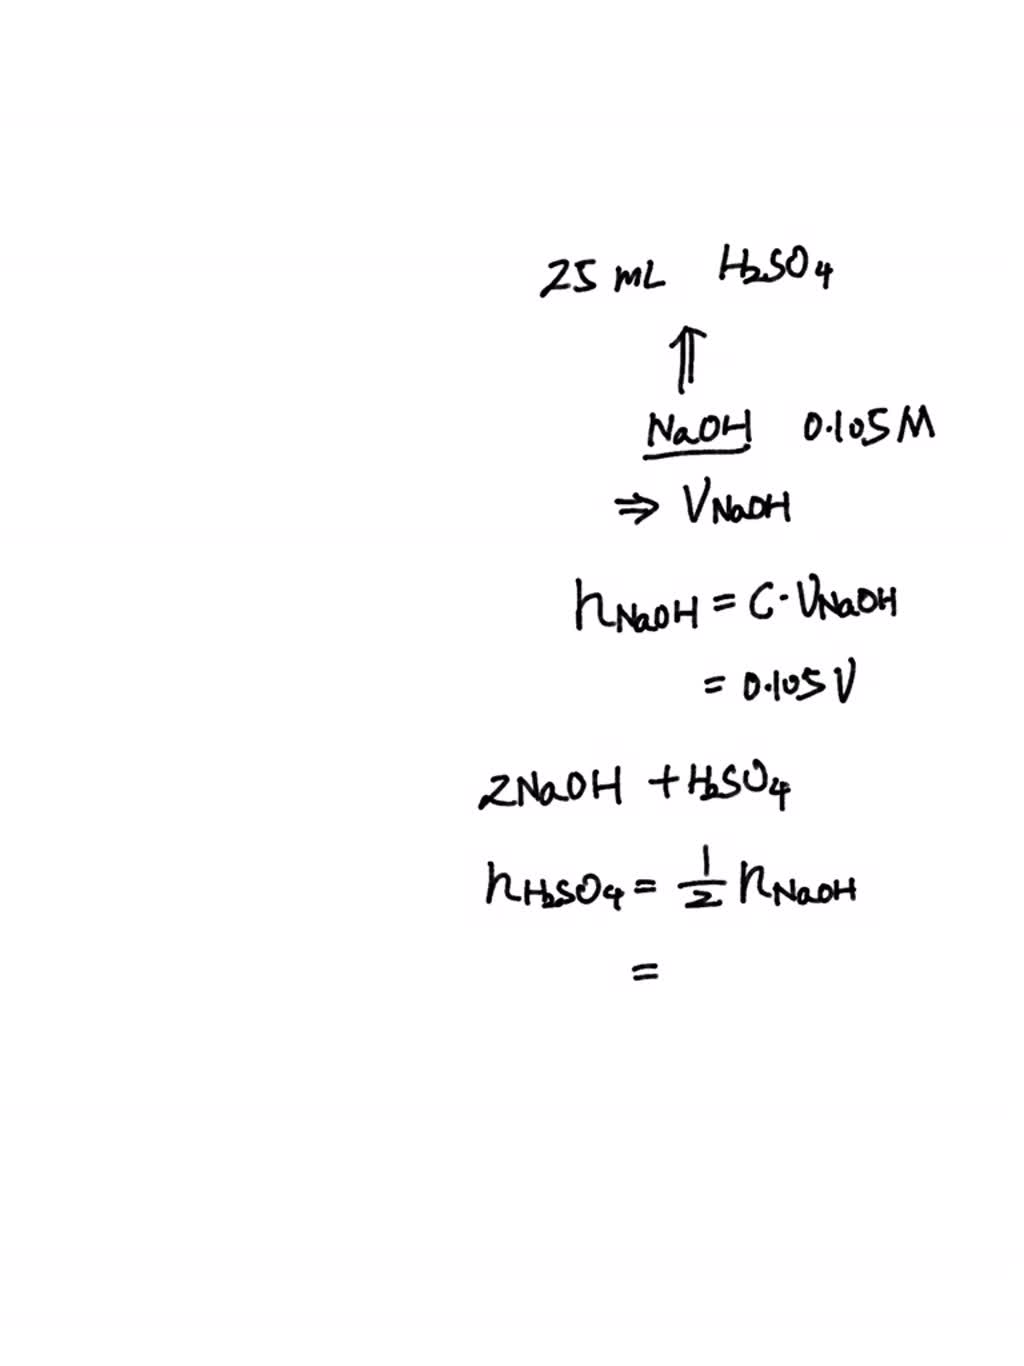 25 mL H₂SO₄
⇑
NaOH 0.105M
⇒ VNaOH
nNaOH = C·VNaOH
= 0.105V
2NaOH + H₂SO₄
nH₂SO₄ = 1/2 nNaOH
=